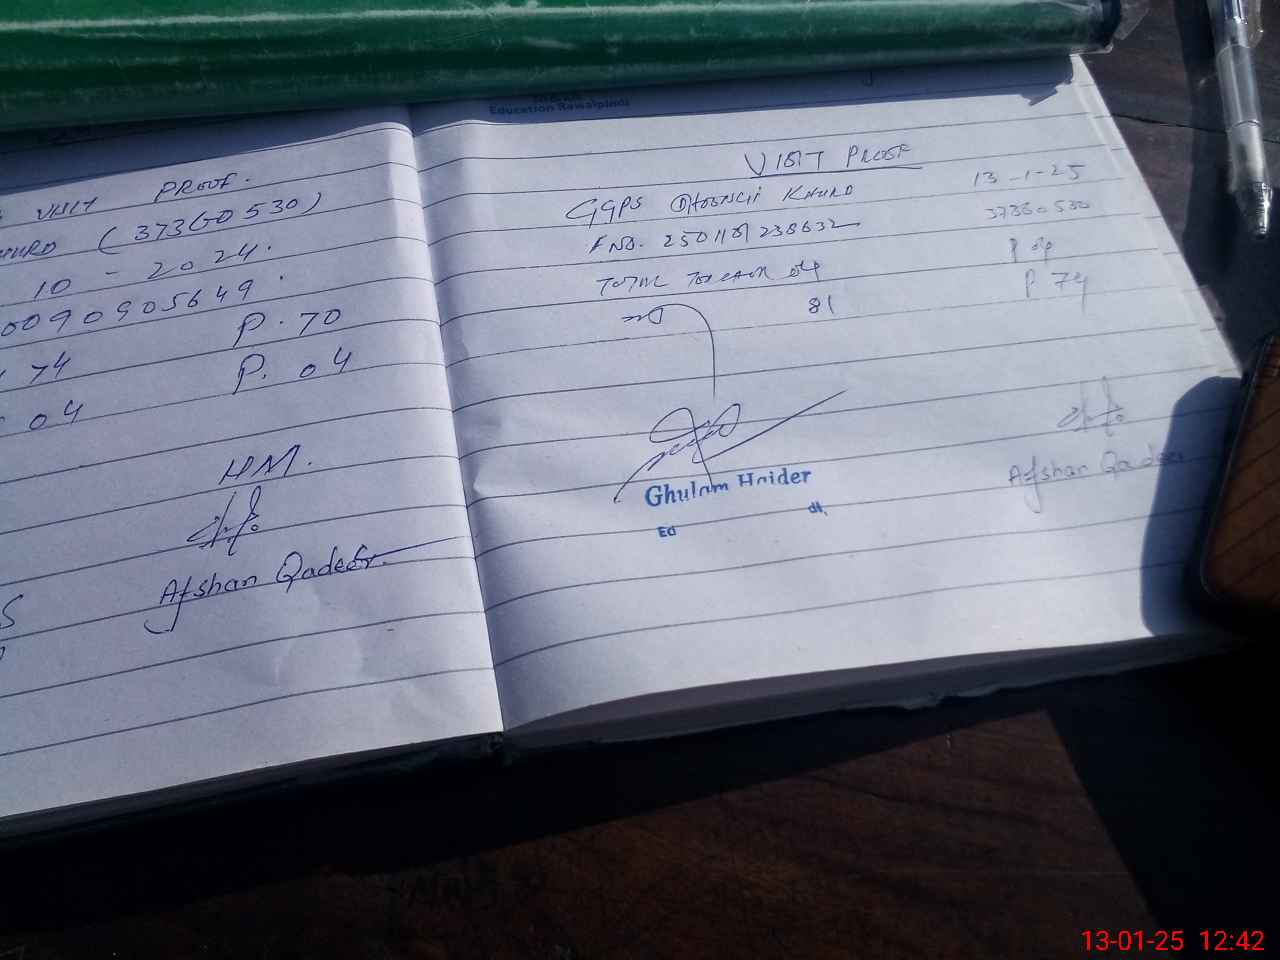 VISIT PROOF.
(37360530)
10 - 2024.
0090905649.
74 P. 70
04 P. 04
HM.
Afshan Qadeer
Education Rawalpindi
VISIT PROOF
GGPS KHURD 13-1-25
F NO. 37360530
TOTAL 04 P 04
81 P 74
Ghulam Haider
Ed
Afshan Qadeer
13-01-25 12:42